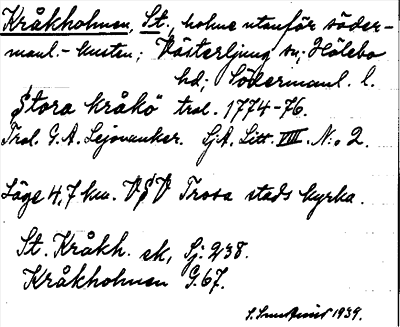 Kråkholmen, St., holme utanför söder-
manl.-kusten; Västerljung sn; Hölebo
hd; Södermanl. l.
Stora kråkö trol. 1774-76.
Trol. G. A. Lejonanker. GjA. Litt. VIII. N:o 2.
Läge 4,7 km. VSV Trosa stads kyrka.
St. Kråkh. sk, Sj. 238.
Kråkholmen G. 67.
1939.